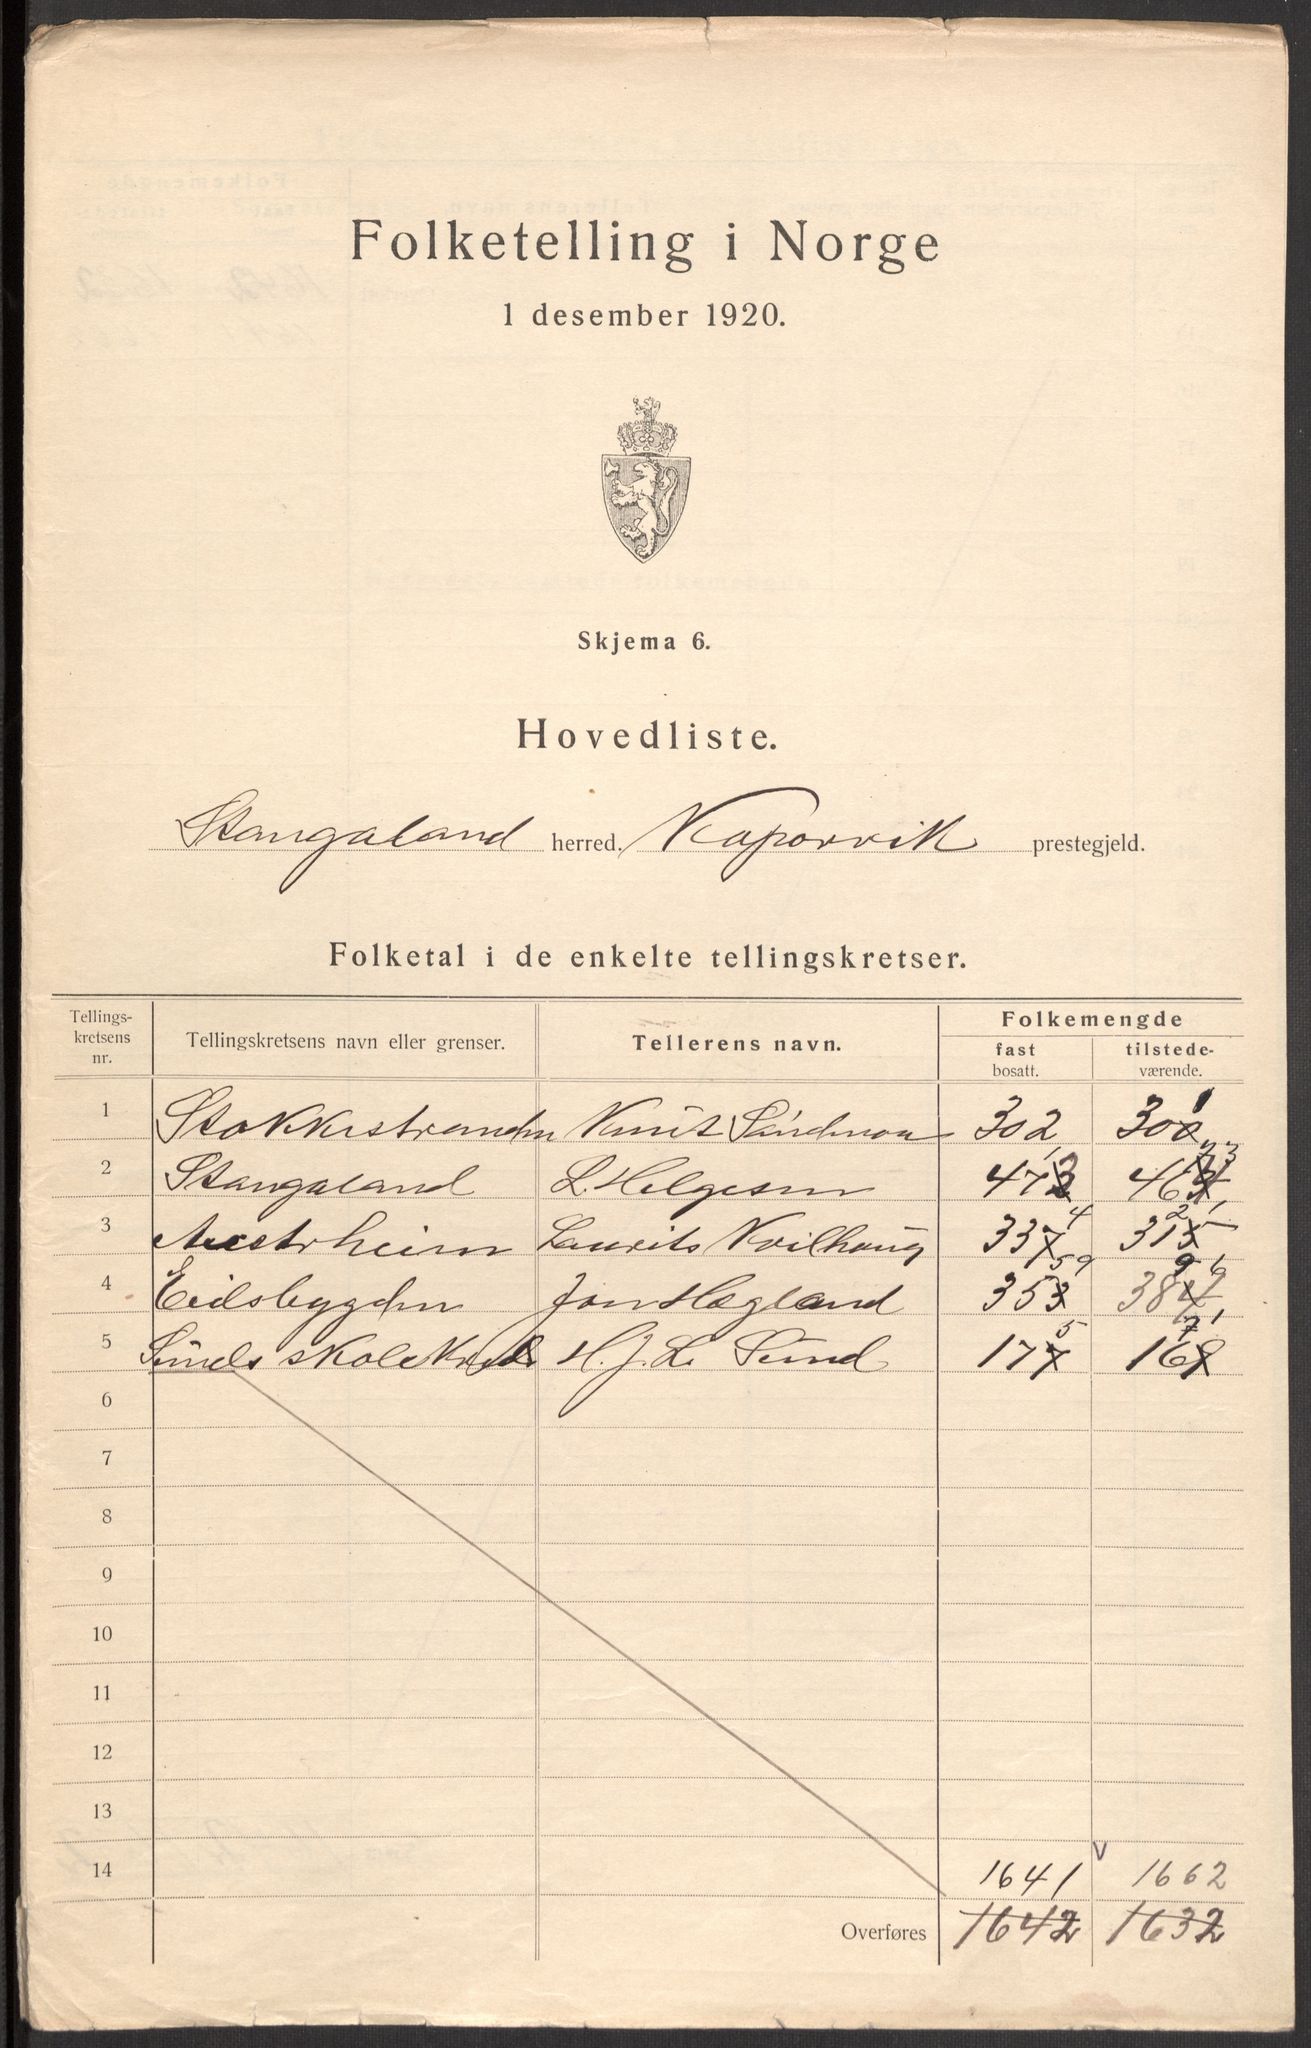 Folketelling i Norge
1 desember 1920.
Skjema 6.
Hovedliste.
Stangaland herred, Kopervik prestegjeld.
Folketal i de enkelte tellingskretser.
Tellings-
kretsens
nr.
Tellingskretsens navn eller grenser.
Tellerens navn.
Folkemengde
fast
bosatt.
tilstede-
værende.
1 Stokkestranden Knut Sandmoa 302 301
2 Stangaland L. Helgesen 47 46
3 Austrheim Laurits Kvilhaug 334 312
4 Eidsbygden Jon Hægland 359 38
5 Sunds skolekreds H. J. L. Sund 175 167
6
7
8
9
10
11
12
13
14 1641 V 1662
Overføres 1642 1632